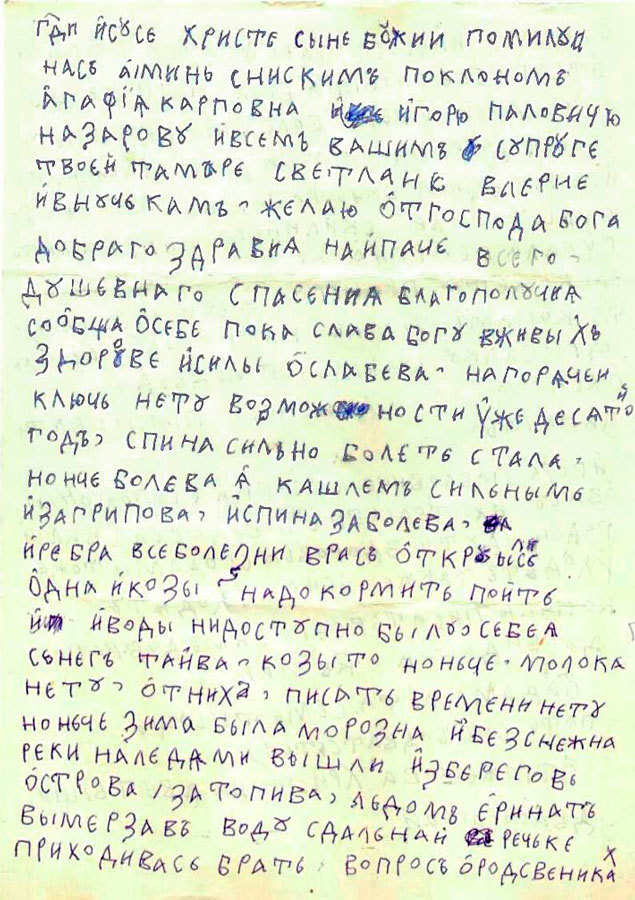 гди ӥсусє христє сынє божии помилуи
насъ аминь снискимъ поклономъ
агафїѧ карповна ӥгорю паловичю
назарову ӥвсемъ вашимъ супругє
твоєӥ тамарє свєтланє валєриє
ӥвнучькамъ. желаю отгоспода бога
добраго здравиѧ наӥпаче всего.
душевнаго спасениѧ благополучиѧ
сообща осєбє пока слава богу вживыхъ
здоровє ӥсилы ослабева. нагорѧчеи
ключь нєту возможности ужє десѧтоӥ
годъ, спина сильно болєть стала,
нончє болєва ѧ кашлємъ сильнымъ
ӥзагрипова, ӥспина заболєва,
ӥрєбра всєболєзни врасъ открылись
одна ӥкозы надокормить поӥть
ӥводы нидоступно было осєбєѧ
сьнєгъ таӥва. козыто ноньчє. молока
нєту, отниха, писать врємєни нєту
ноньчє зима была морозна ӥбєзснєжна
рєки налєдѧми вышли ӥзбєрєговъ
острова, затопива, льдомъ єринать
вымєрзавъ воду сдальнаӥ рєчькє
приходивась брать. вопросъ ородсвєниках